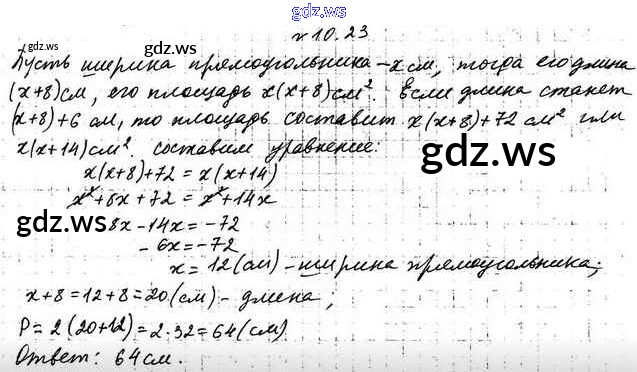 gdz.ws
№10.23
gdz.ws gdz.ws gdz.ws
Пусть ширина прямоугольника - x см, тогда его длина
(x+8) см, его площадь x(x+8) см². Если длина станет
(x+8)+6 см, то площадь составит x(x+8)+72 см² или
x(x+14) см². Составим уравнение:
gdz.ws
x(x+8)+72 = x(x+14)
x²+8x+72 = x²+14x
gdz.ws
8x-14x=-72
-6x=-72
x=12(см) - ширина прямоугольника;
x+8=12+8=20(см) - длина,
P=2(20+12)=2·32=64(см)
gdz.ws gdz.ws
Ответ: 64 см.